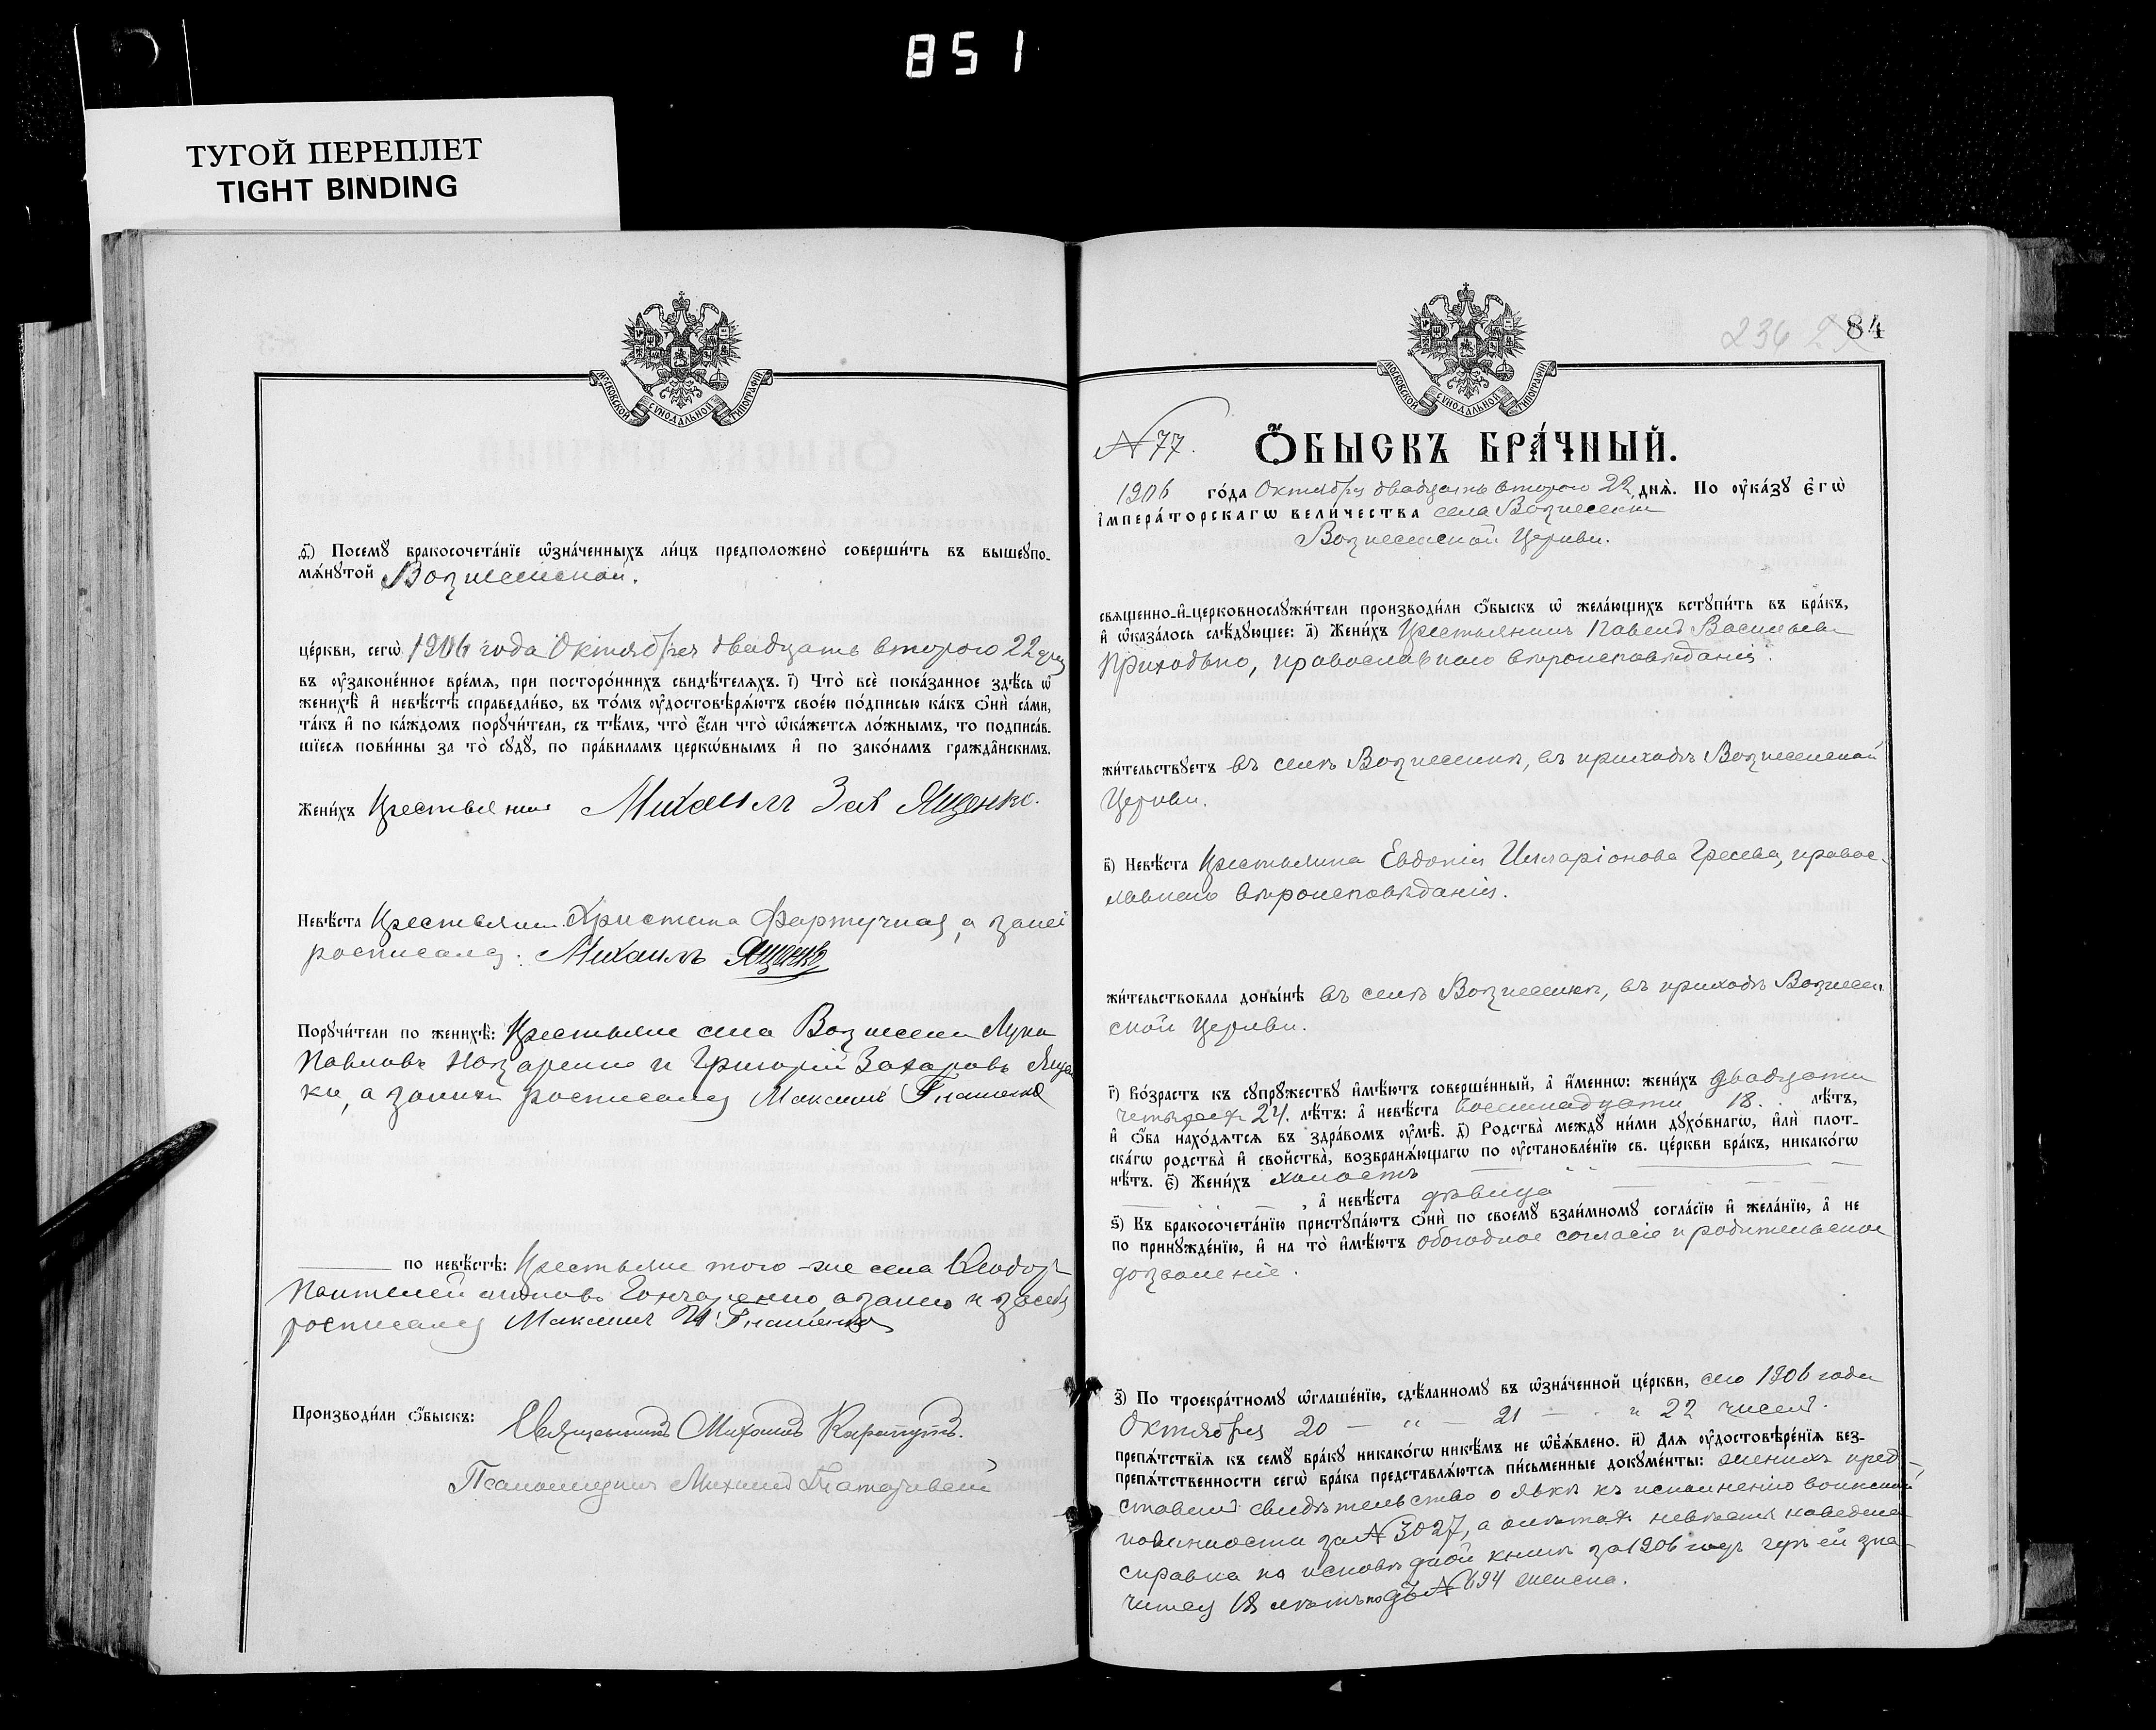 851
ТУГОЙ ПЕРЕПЛЕТ
TIGHT BINDING
МОСКОВСКОЙ СѴНОДАЛЬНОЙ ТИПОГРАФІИ
ѳ҃) Посемꙋ бракосочета́нїе ѡ҆зна́ченныхъ ли́цъ предположено̀ соверши́ть въ вышеꙋпо-
мѧ́нꙋтой Вознесенской.
це́ркви, сегѡ̀ 1906 года Октября двадцать второго 22 дня
въ ᲂу҆законе́нное вре́мя, при посторо́ннихъ свидѣ́телѧхъ. і҃) Что̀ всѐ пока́занное здѣ́сь ѡ҆
женихѣ̀ и҆ невѣ́стѣ справедли́во, въ то́мъ ᲂу҆достовѣрѧ́ютъ свое́ю по́дписью ка́къ ѻ҆нѝ са́ми,
та́къ и҆ по ка́ждомъ порꙋчи́тели, съ тѣ́мъ, что̀ є҆́сли что̀ ѡ҆ка́жетсѧ ло́жнымъ, то подписа́в-
шїесѧ пови́нны за то̀ сꙋдꙋ̀, по пра́виламъ церкѡ́внымъ и҆ по зако́намъ гражда̑нскимъ.
Жени́хъ Крестьянинъ Михаилъ Зах Ященко.
Невѣ́ста Крестьян. Христина Фартучная, а за ней
росписался. Михаилъ Ященко
Порꙋчи́тели по женихѣ̀: Крестьяне села Вознесени Лука
Павловъ Назаренко и Григорій Захаровъ Ящен
ко, а за нихъ росписался Максимъ Гнатенко
по невѣ́стѣ: Крестьяне того-же села Ѳеодоръ
Пантелеймоновъ Гончаренко, а за него и за себя
росписался Максимъ И Гнатенко
Производи́ли ѻ҆́быскъ: Священникъ Михаилъ
Псаломщикъ Михаилъ
236 84
МОСКОВСКОЙ СѴНОДАЛЬНОЙ ТИПОГРАФІИ
№ 77.
Ѻ҆́БЫСКЪ БРА́ЧНЫЙ.
1906 го́да Октября двадцать второго 22 днѧ̀. По ᲂу҆ка́зꙋ є҆гѡ̀
і҆мпера́торскагѡ вели́чества села Вознесени
Вознесенской Церкви.
свѧщенно-и҆-церковнослꙋжи́тели производи́ли ѻ҆́быскъ ѡ҆ жела́ющихъ встꙋпи́ть въ бра́къ,
и҆ ѡ҆каза́лось слѣ́дꙋющее: а҃) Жени́хъ Крестьянинъ Павелъ Васильевъ
Приходько, православнаго вѣроисповѣданія.
жи́тельствꙋетъ въ селѣ Вознесенкѣ, въ приходѣ Вознесенской
Церкви.
в҃) Невѣ́ста Крестьянка Евдокія Иларіонова Гресева, правос-
лавнаго вѣроисповѣданія.
жи́тельствовала доны́нѣ въ селѣ Вознесенкѣ, въ приходѣ Вознесен
ской Церкви.
г҃) Во́зрастъ къ сꙋпрꙋ́жествꙋ и҆мѣ́ютъ соверше́нный, а҆ и҆́меннѡ: жени́хъ двадцати
четырехъ 24. лѣ́тъ: а҆ невѣ́ста восемнадцати 18. лѣ́тъ,
и҆ ѻ҆́ба нахо́дѧтсѧ въ здра́вомъ ᲂу҆мѣ̀. д҃) Родства̀ междꙋ̀ ни́ми дꙋхо́внагѡ, и҆лѝ плот-
ска́гѡ родства̀ и҆ свойства̀, возбранѧ́ющагѡ по ᲂу҆становле́нїю св. це́ркви бра́къ, никако́гѡ
нѣ́тъ. є҃) Жени́хъ холостъ
, а҆ невѣ́ста дѣвица
ѕ҃) Къ бракосочета́нїю пристꙋпа́ютъ ѻ҆нѝ по своемꙋ̀ взаи́мномꙋ согла́сїю и҆ жела́нїю, а҆ не
по принꙋжде́нїю, и҆ на то̀ и҆мѣ́ютъ обоюдное согласіе и родительское
дозволеніе.
з҃) По троекра́тномꙋ ѡ҆глаше́нїю, сдѣ́ланномꙋ въ ѡ҆зна́ченной це́ркви, сего 1906 года
Октября 20 — „ — 21 — и 22 чиселъ.
препѧ́тствїѧ къ семꙋ̀ бра́кꙋ никако́гѡ никѣ́мъ не ѡ҆б̾ѧ́влено. и҃) Длѧ ᲂу҆достовѣре́нїѧ без-
препѧ́тственности сегѡ̀ бра́ка представлѧ́ютсѧ пи́сьменные докꙋме́нты: женихъ пред-
ставилъ свидѣтельство о явкѣ къ исполненію воинской
повинности за № 3027, а о лѣтахъ невѣсты наведена
справка по исповѣдной книгѣ за 1906 годъ гдѣ ей зна-
чится 18 лѣтъ подъ № 494 женска.